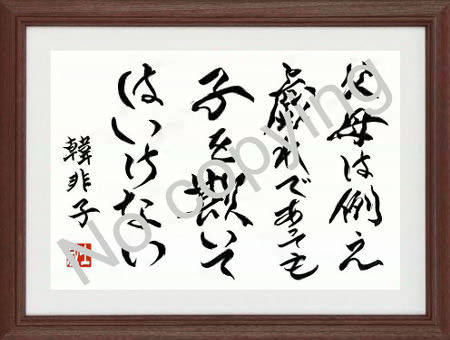 父母は例え
戯れであっても
子を欺いて
はいけない
韓非子
No copying